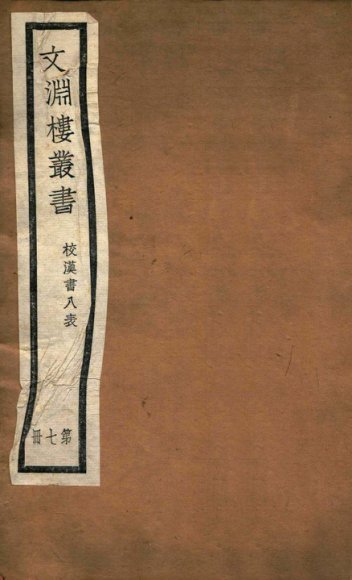 文淵樓叢書
校漢書八表
第七冊